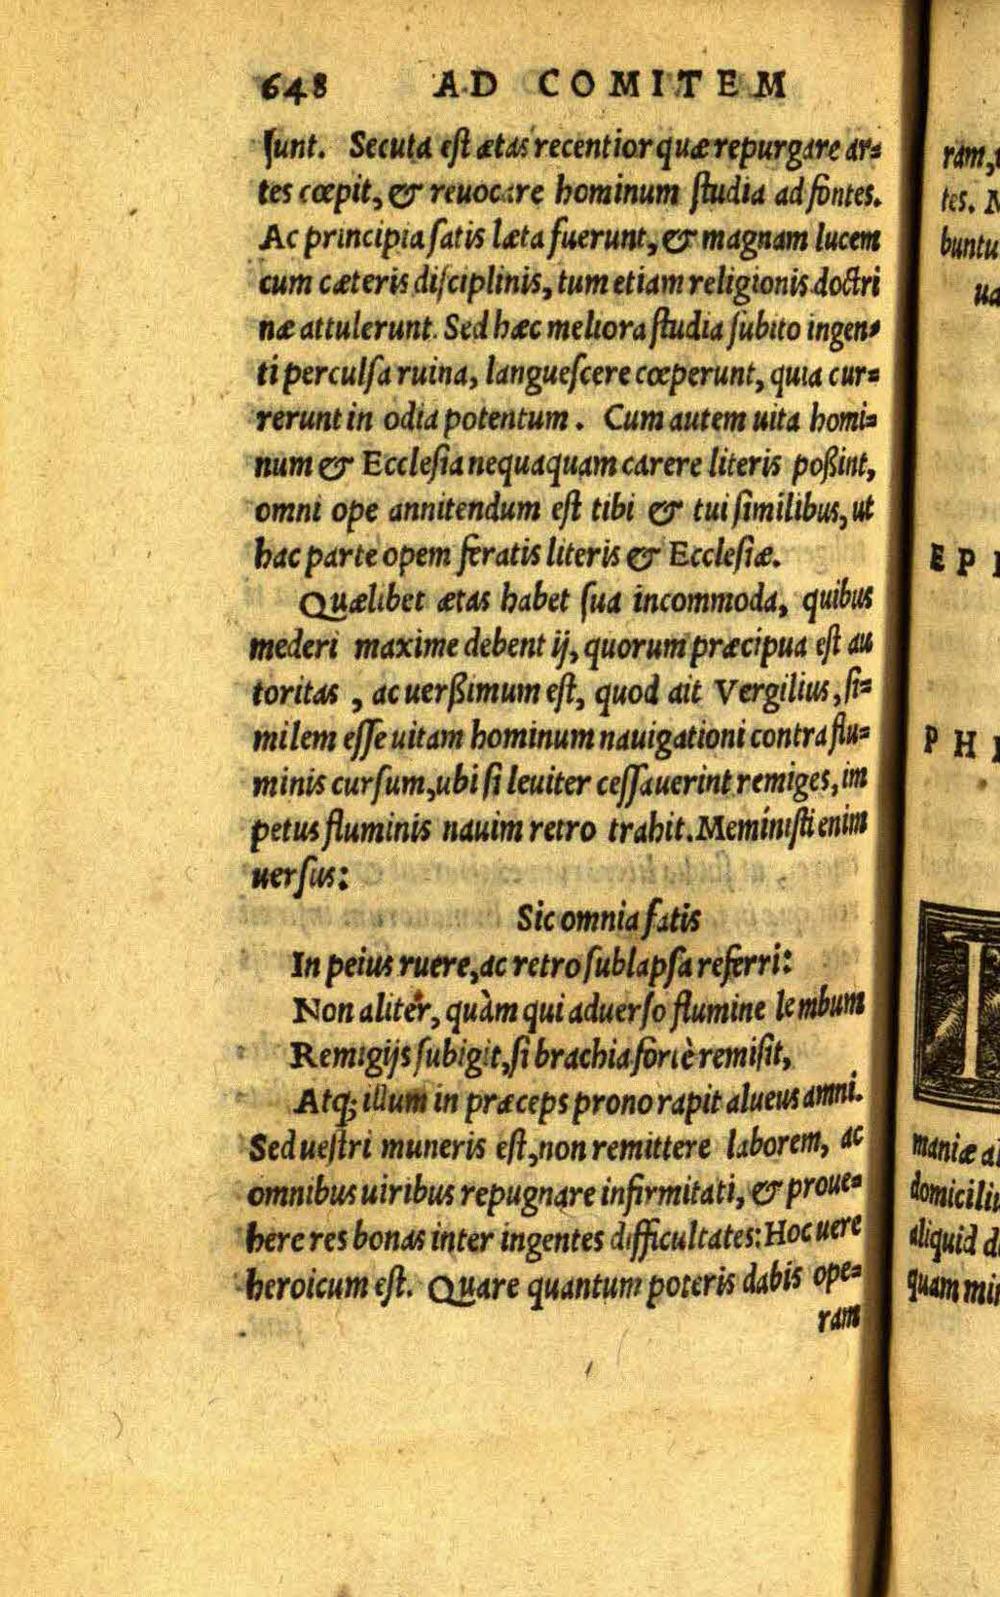 648 AD COMITEM
ſunt. Secuta eſt ætas recentior quæ repurgare ar=
tes cœpit, & reuocare hominum ſtudia ad fontes.
Ac principia ſatis læta fuerunt, & magnam lucem
cum cæteris diſciplinis, tum etiam religionis doctri
næ attulerunt. Sed hæc meliora ſtudia ſubito ingen=
ti perculſa ruina, langueſcere cœperunt, quia cur=
rerunt in odia potentum. Cum autem uita homi=
num & Eccleſia nequaquam carere literis poßint,
omni ope annitendum eſt tibi & tui ſimilibus, ut
hac parte opem feratis literis & Eccleſiæ.
Quælibet ætas habet ſua incommoda, quibus
mederi maxime debent ij, quorum præcipua eſt au
toritas, ac uerßimum eſt, quod ait Vergilius, ſi=
milem eſſe uitam hominum nauigationi contra flu=
minis curſum, ubi ſi leuiter ceſſauerint remiges, im
petus fluminis nauim retro trahit. Meminiſti enim
uerſus:
Sic omnia fatis
In peius ruere, ac retro ſublapſa referri:
Non aliter, quàm qui aduerſo flumine lembum
Remigijs ſubigit, ſi brachia fortè remiſit,
Atq; illum in præceps prono rapit alueus amni.
Sed ueſtri muneris eſt, non remittere laborem, ac
omnibus uiribus repugnare infirmitati, & proue=
here res bonas inter ingentes difficultates: Hoc uere
heroicum eſt. Quare quantum poteris dabis ope=
ram
ram,
tes.
buntu
EPI
PHI
I
maniæ
domiciliu
aliquid
quam